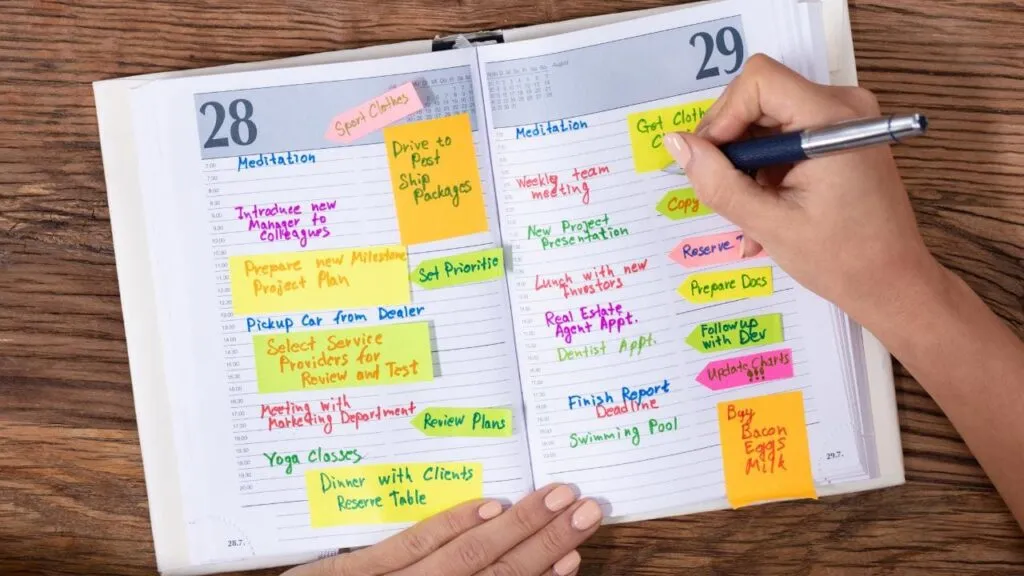 28
Sport Clothes
Drive to
Post
Ship
Packages
Meditation
Introduce new
Manager to
Colleagues
Prepare new Milestone
Project Plan
Set Prioritie
Pickup Car from Dealer
Select Service
Providers for
Review and Test
Meeting with
Marketing Department
Review Plans
Yoga Classes
Dinner with Clients
Reserve Table
28.7.
August
29
Meditation
Get Cloth
Weekly team
meeting
Copy
New Project
Presentation
Reserve
Lunch with new
Investors
Prepare Docs
Real Estate
Agent Appt.
Follow up
with Dev
Dentist Appt.
Update Charts
!!!
Finish Report
Deadline
Swimming Pool
Buy
Bacon
Eggs
Milk
29.7.